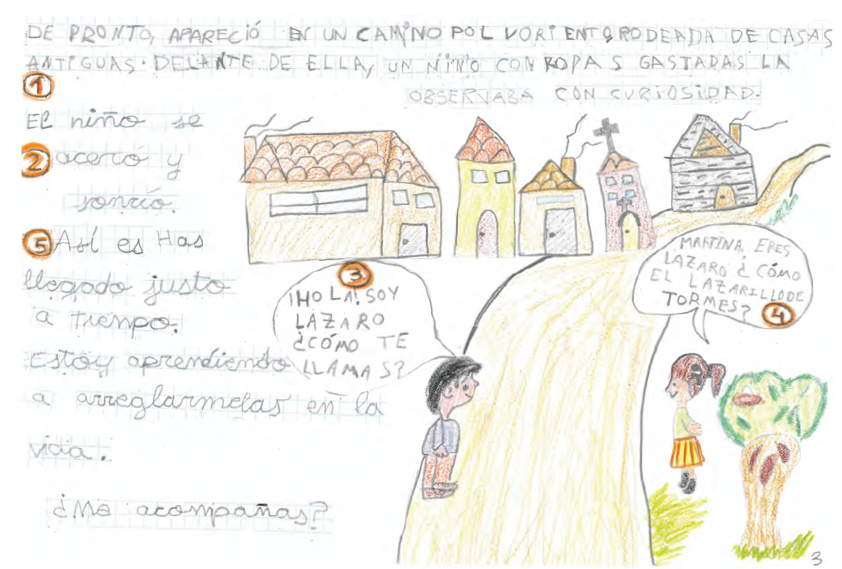 DE PRONTO, APARECIÓ EN UN CAMINO POLVORIENTO RODEADA DE CASAS
ANTIGUAS. DELANTE DE ELLA, UN NIÑO CON ROPAS GASTADAS LA
OBSERVABA CON CURIOSIDAD.
1
El niño se
2 acercó y
sonrió.
3
¡HOLA! SOY
LÁZARO
¿CÓMO TE
LLAMAS?
MARTINA. ERES
LAZARO ¿CÓMO
EL LAZARILLO DE
TORMES? 4
5 Así es Has
llegado justo
a tiempo.
Estoy aprendiendo
a arreglarmelas en la
vida.
¿Me acompañas?
3